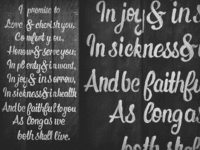 I promise to
Love & cherish you,
Comfort you,
Honor & serve you,
In plenty & in want,
In joy & in sorrow,
In sickness & in health
And be faithful to you
As long as we
both shall live.
In joy & in s
In sickness &
And be faithful
As long a
both sha